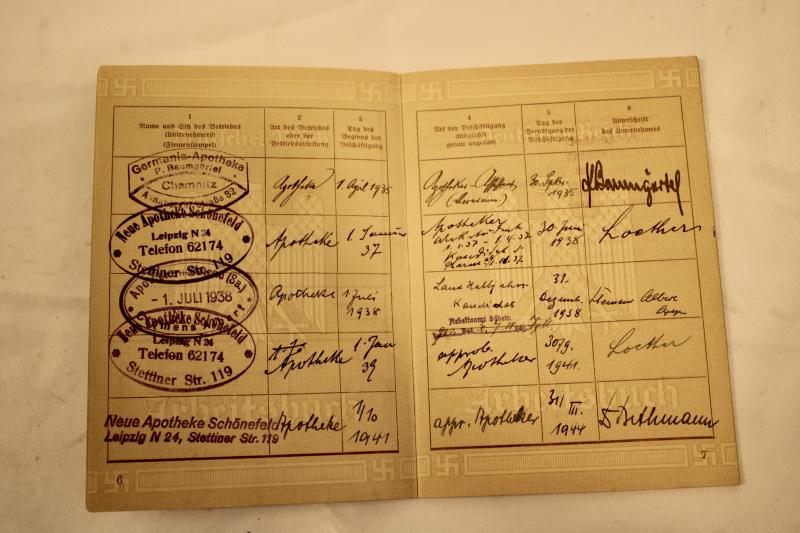 1
Name und Sitz des Betriebes
(Unternehmers)
(Firmenstempel)
2
Art des Betriebes
oder der
Betriebsabteilung
3
Tag des
Beginns der
Beschäftigung
Germania-Apotheke
P. Baumgärtel
Chemnitz
Apotheke
1. April 1935
Neue Apotheke Schönefeld
Leipzig N 24
Telefon 62174
Stettiner Str. 119
Apotheke
1. Januar
37
- 1. JULI 1938
Apotheke
1. Juli
1938
Neue Apotheke Schönefeld
Leipzig N 24
Telefon 62174
Stettiner Str. 119
Apotheke
1. Jan
39
Neue Apotheke Schönefeld
Leipzig N 24, Stettiner Str. 119
Apotheke
1/10
1941
6
4
Art der Beschäftigung
(möglichst
genau angeben)
5
Tag der
Beendigung der
Beschäftigung
6
Unterschrift
des Unternehmers
30. Septbr.
1935
Baumgärtel
Apotheker
1.1.37 - 1.4.37
30. Juni
1938
Kandidat
31.
Dezemb.
1938
Arbeitsamt Döbeln
approb.
Apotheker
30/9.
1941.
appr. Apotheker
31/
III.
1944
Bethmann
7